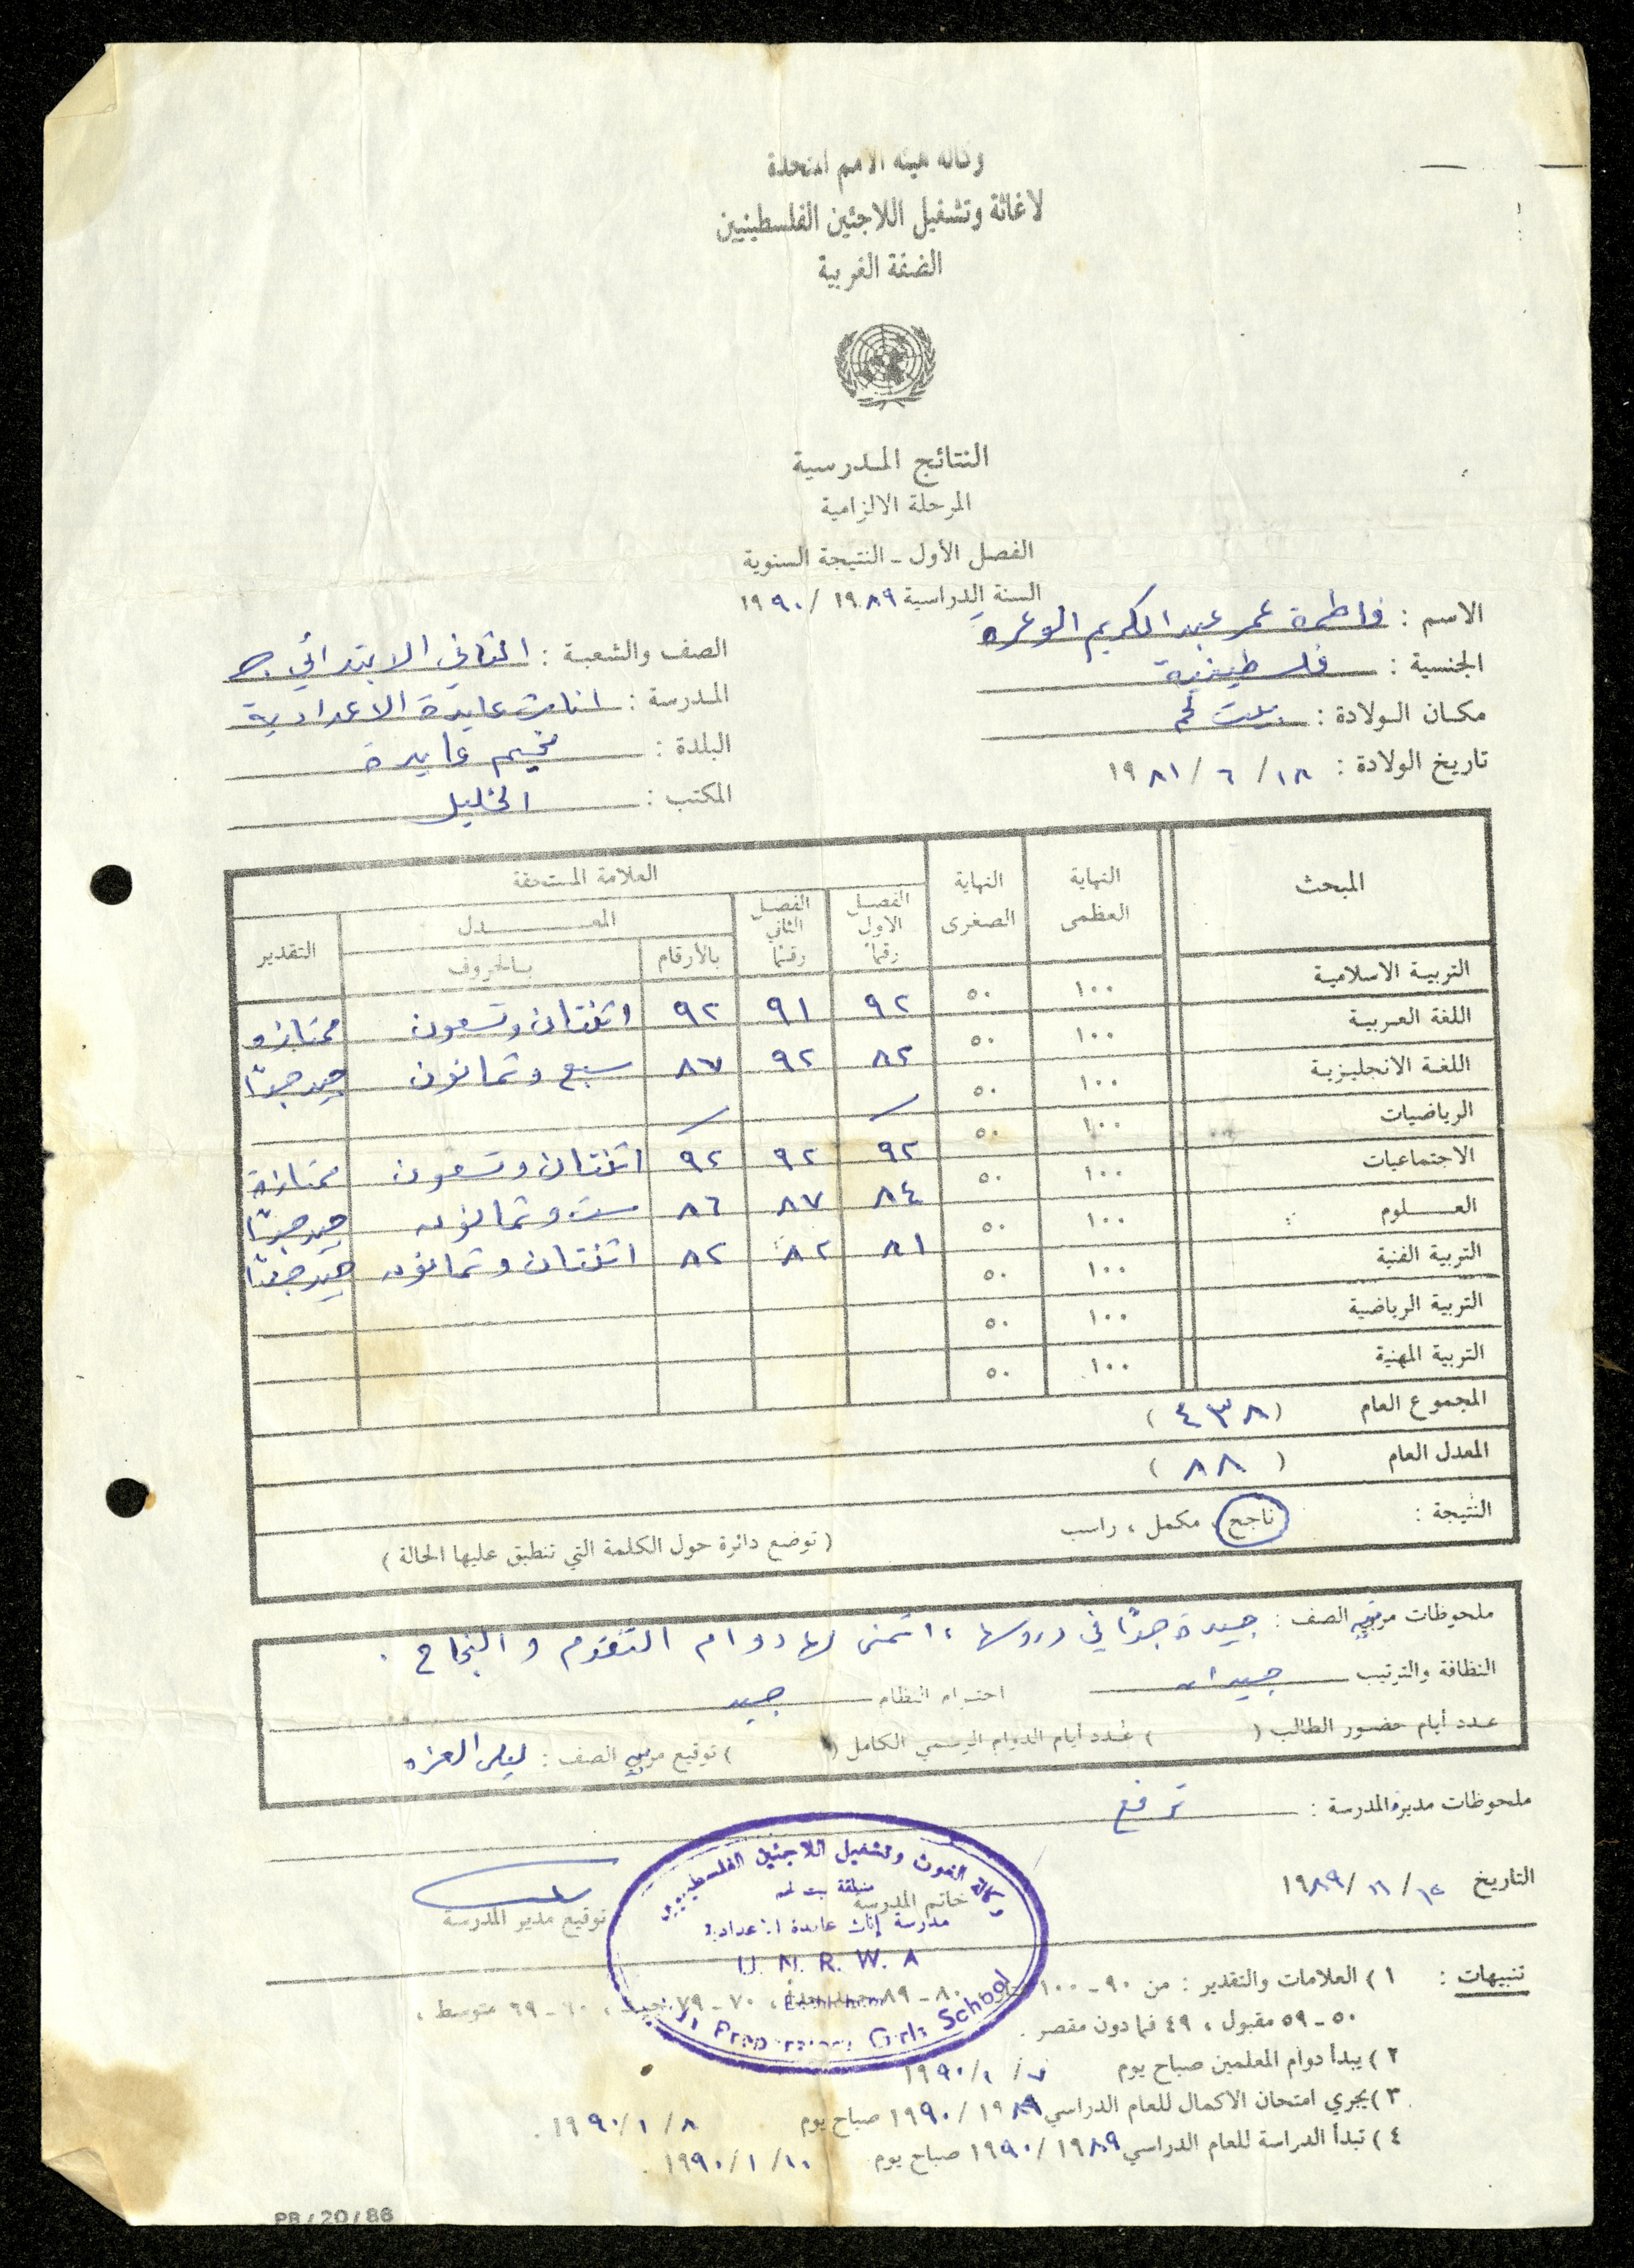 وكالة هيئة الامم المتحدة
لاغاثة وتشغيل اللاجئين الفلسطينيين
الضفة الغربية
النتائج المدرسية
المرحلة الالزامية
الفصل الأول - النتيجة السنوية
السنة الدراسية ١٩٨٩ / ١٩٩٠
الاسم : فاطمة عمر عبد الكريم الوعرة
الصف والشعبة : الثاني الابتدائي ج
الجنسية : فلسطينية
المدرسة : اناث عايدة الاعدادية
مكان الولادة : بيت لحم
البلدة : مخيم عايدة
تاريخ الولادة : ١٨ / ٦ / ١٩٨١
المكتب : الخليل
المبحث النهاية العظمى النهاية الصغرى العلامة المستحقة
الفصل الاول رقماً الفصل الثاني رقماً المعدل التقدير
بالأرقام بالحروف
التربية الاسلامية ١٠٠ ٥٠ ٩٢ ٩١ ٩٢ اثنتان وتسعون ممتازة
اللغة العربية ١٠٠ ٥٠ ٨٢ ٩٢ ٨٧ سبع وثمانون جيد جداً
اللغة الانجليزية ١٠٠ ٥٠ / /
الرياضيات ١٠٠ ٥٠ ٩٢ ٩٢ ٩٢ اثنتان وتسعون ممتازة
الاجتماعيات ١٠٠ ٥٠ ٨٤ ٨٧ ٨٦ ست وثمانون جيد جداً
العلوم ١٠٠ ٥٠ ٨١ ٨٢ ٨٢ اثنتان وثمانون جيد جداً
التربية الفنية ١٠٠ ٥٠
التربية الرياضية ١٠٠ ٥٠
التربية المهنية ١٠٠ ٥٠
المجموع العام ( ٤٣٨ )
المعدل العام ( ٨٨ )
النتيجة : ناجح ، مكمل ، راسب ( توضع دائرة حول الكلمة التي تنطبق عليها الحالة )
ملحوظات مربي الصف : جيدة جداً في دروسها ، اتمنى لها دوام التقدم و النجاح .
النظافة والترتيب جيدان احترام النظام جيد
عدد أيام حضور الطالب ( ) عدد أيام الدوام الرسمي الكامل ( ) توقيع مربي الصف : ليلى العزه
ملحوظات مديرة المدرسة : ترفع
وكالة الغوث وتشغيل اللاجئين الفلسطينيين
منطقة بيت لحم
خاتم المدرسة
مدرسة إناث عايدة الاعدادية
U. N. R. W. A
Preparatory Girls School
التاريخ ١٢ / ١١ / ١٩٨٩
توقيع مدير المدرسة
تنبيهات : ١ ) العلامات والتقدير : من ٩٠ - ١٠٠ ممتاز ، ٨٠ - ٨٩ جيد جداً ، ٧٠ - ٧٩ جيد ، ٦٠ - ٦٩ متوسط ،
٥٠ - ٥٩ مقبول ، ٤٩ فما دون مقصر .
٢ ) يبدأ دوام المعلمين صباح يوم ٧ / ١ / ١٩٩٠
٣ ) يجري امتحان الاكمال للعام الدراسي ١٩٨٩ / ١٩٩٠ صباح يوم ٨ / ١ / ١٩٩٠ .
٤ ) تبدأ الدراسة للعام الدراسي ١٩٨٩ / ١٩٩٠ صباح يوم ١٠ / ١ / ١٩٩٠ .
PB / 20 / 86